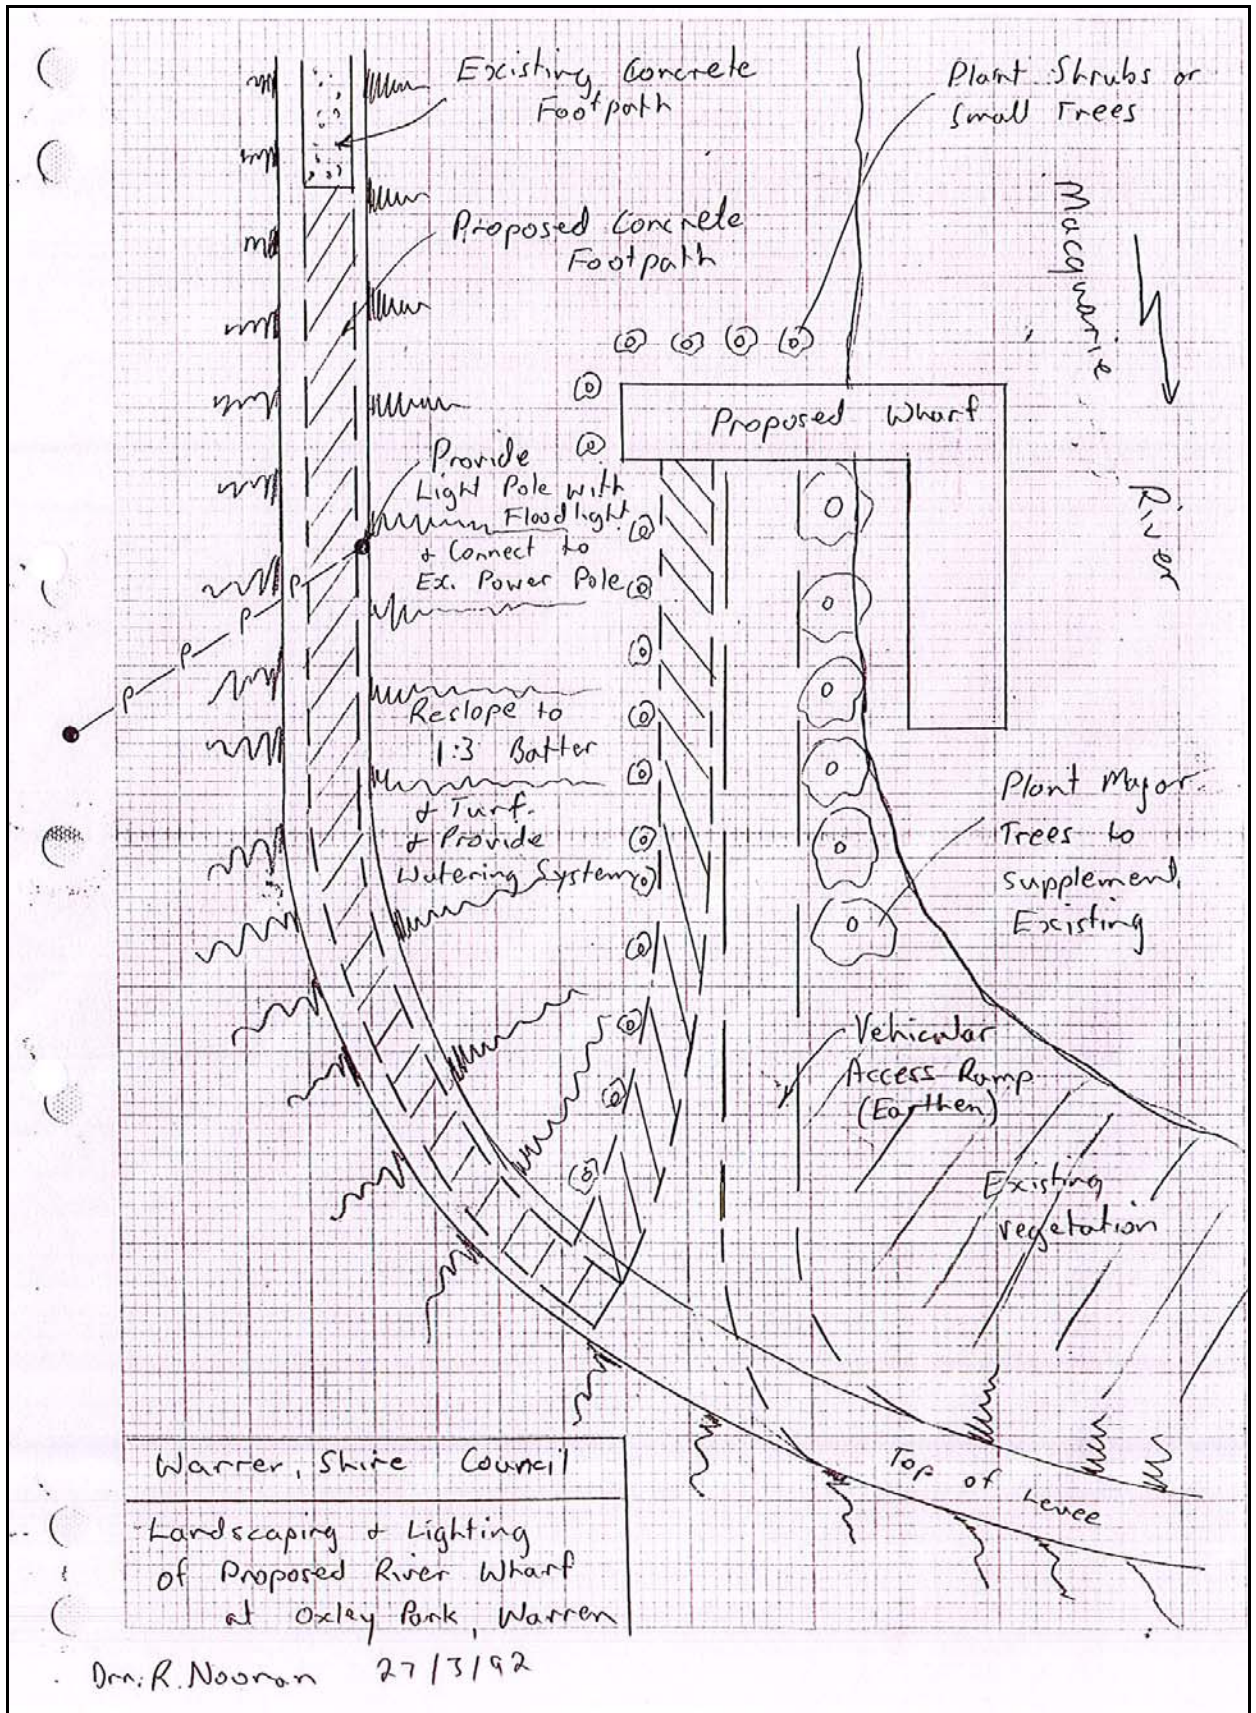 Existing Concrete
Footpath
Plant Shrubs or
Small Trees
Proposed Concrete
Footpath
Macquarie
River
Proposed Wharf
Provide
Light Pole with
Floodlight
& Connect to
Ex. Power Pole
P
P
P
P
Reslope to
1:3 Batter
& Turf.
& Provide
Watering System
Plant Major
Trees to
supplement
Existing
Vehicular
Access Ramp
(Earthen)
Existing
vegetation
Top of Levee
Warren Shire Council
Landscaping & Lighting
of Proposed River Wharf
at Oxley Park, Warren
Drn: R. Noonan 27/3/92